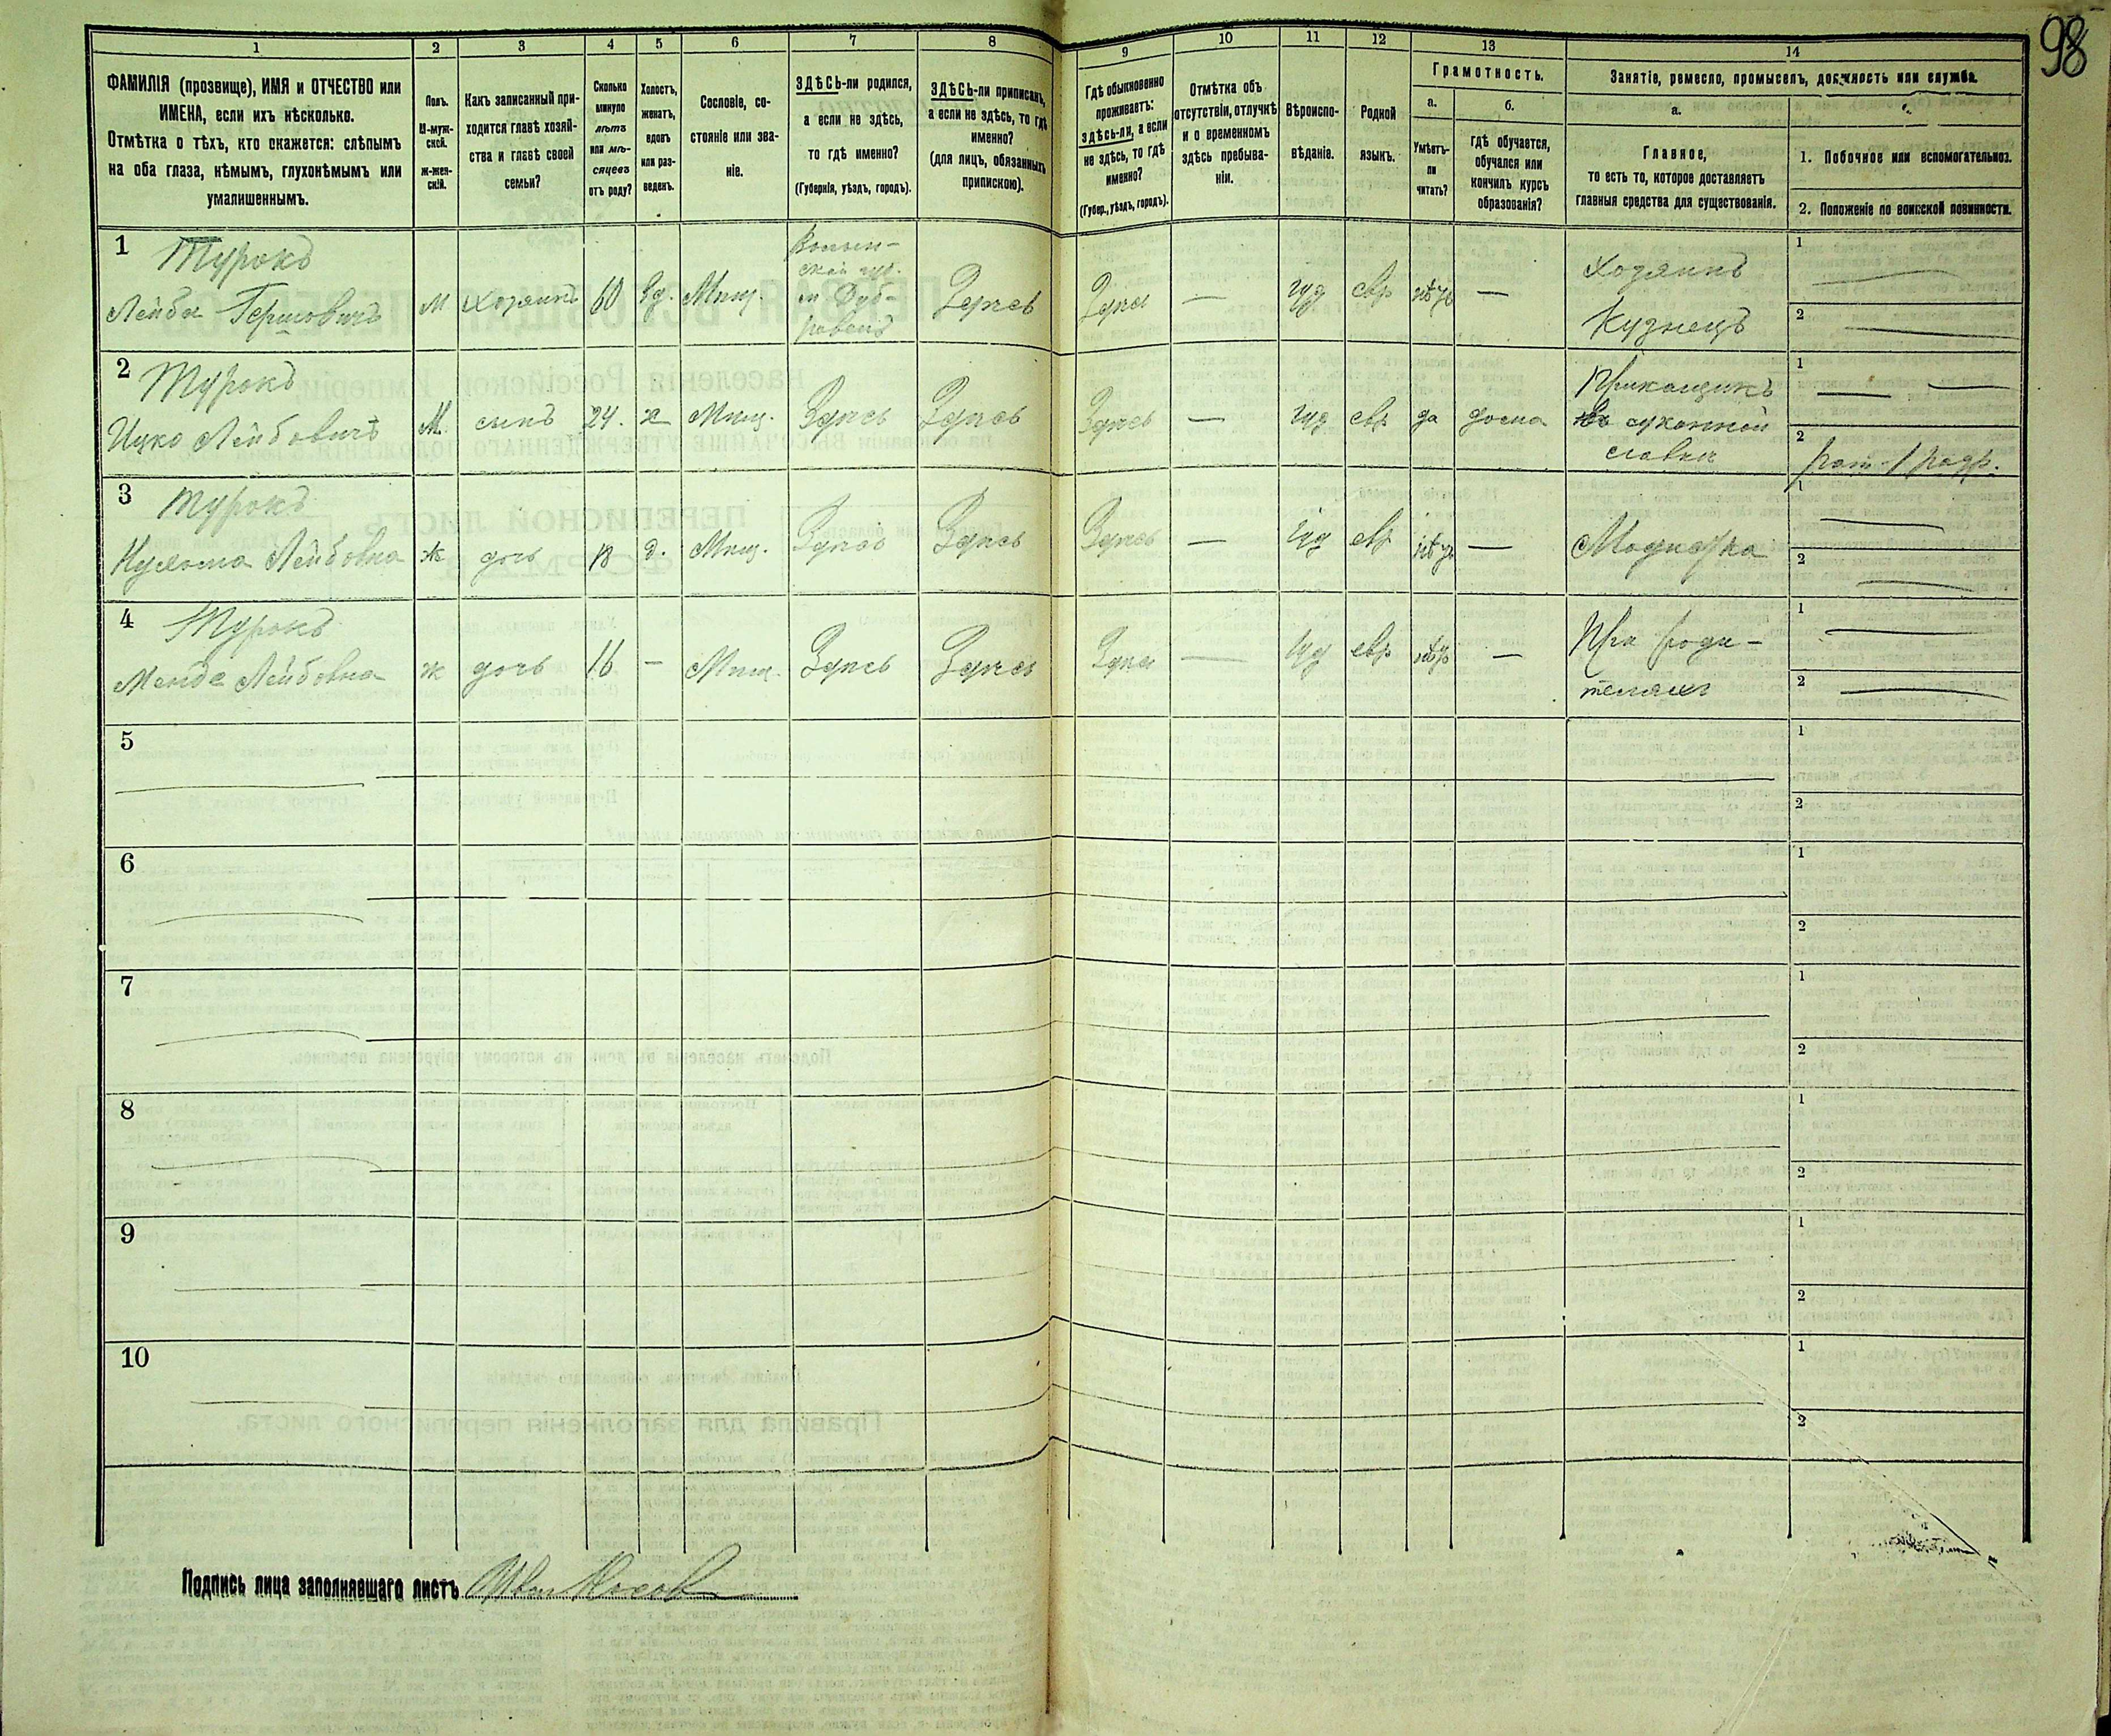 98
1 2 3 4 5 6 7 8 9 10 11 12 13 14
ФАМИЛІЯ (прозвище), ИМЯ и ОТЧЕСТВО или
ИМЕНА, если ихъ нѣсколько.
Отмѣтка о тѣхъ, кто окажется: слѣпымъ
на оба глаза, нѣмымъ, глухонѣмымъ или
умалишеннымъ.
Полъ.
М-муж-
ской.
ж-жен-
скій.
Какъ записанный при-
ходится главѣ хозяй-
ства и главѣ своей
семьи?
Сколько
минуло
лѣтъ
или мѣ-
сяцевъ
отъ роду?
Холостъ,
женатъ,
вдовъ
или раз-
веденъ.
Сословіе, со-
стояніе или зва-
ніе.
ЗДѢСЬ-ли родился,
а если не здѣсь,
то гдѣ именно?
(Губернія, уѣздъ, городъ).
ЗДѢСЬ-ли приписанъ,
а если не здѣсь, то гдѣ
именно?
(для лицъ, обязанныхъ
припискою).
Гдѣ обыкновенно
проживаетъ:
здѣсь-ли, а если
не здѣсь, то гдѣ
именно?
(Губер., уѣздъ, городъ).
Отмѣтка объ
отсутствіи, отлучкѣ
и о временномъ
здѣсь пребыва-
ніи.
Вѣроиспо-
вѣданіе.
Родной
языкъ.
Грамотность.
а.
Умѣетъ-
ли
читать?
б.
гдѣ обучается,
обучался или
кончилъ курсъ
образованія?
Занятіе, ремесло, промыселъ, должность или служба.
а.
Главное,
то есть то, которое доставляетъ
главныя средства для существованія.
1. Побочное или вспомогательное.
2. Положеніе по воинской повинности.
1
Турокъ
Лейба Гершовичъ
М
Хозяинъ
60
вд.
Мѣщ.
Волын-
ской губ.
Здѣсь
Здѣсь
—
іуд
евр
—
Хозяинъ
Кузнецъ
1
2
2
Турокъ
Ицко Лейбовичъ
М
сынъ
24.
х
Мѣщ.
Здѣсь
Здѣсь
Здѣсь
—
іуд
евр
да
дома
Прикащикъ
въ суконной
лавки
1
2
рат. 1 разр.
3
Турокъ
Лейбовна
ж
дочь
18
д.
Мѣщ.
Здѣсь
Здѣсь
Здѣсь
—
іуд
евр
—
Модистка
1
2
4
Турокъ
Менде Лейбовна
ж
дочь
16
—
Мѣщ.
Здѣсь
Здѣсь
Здѣсь
—
іуд
евр
—
При роди-
теляхъ
1
2
5
1
2
6
1
2
7
1
2
8
1
2
9
1
2
10
1
2
Подпись лица заполнявшаго листъ Иван